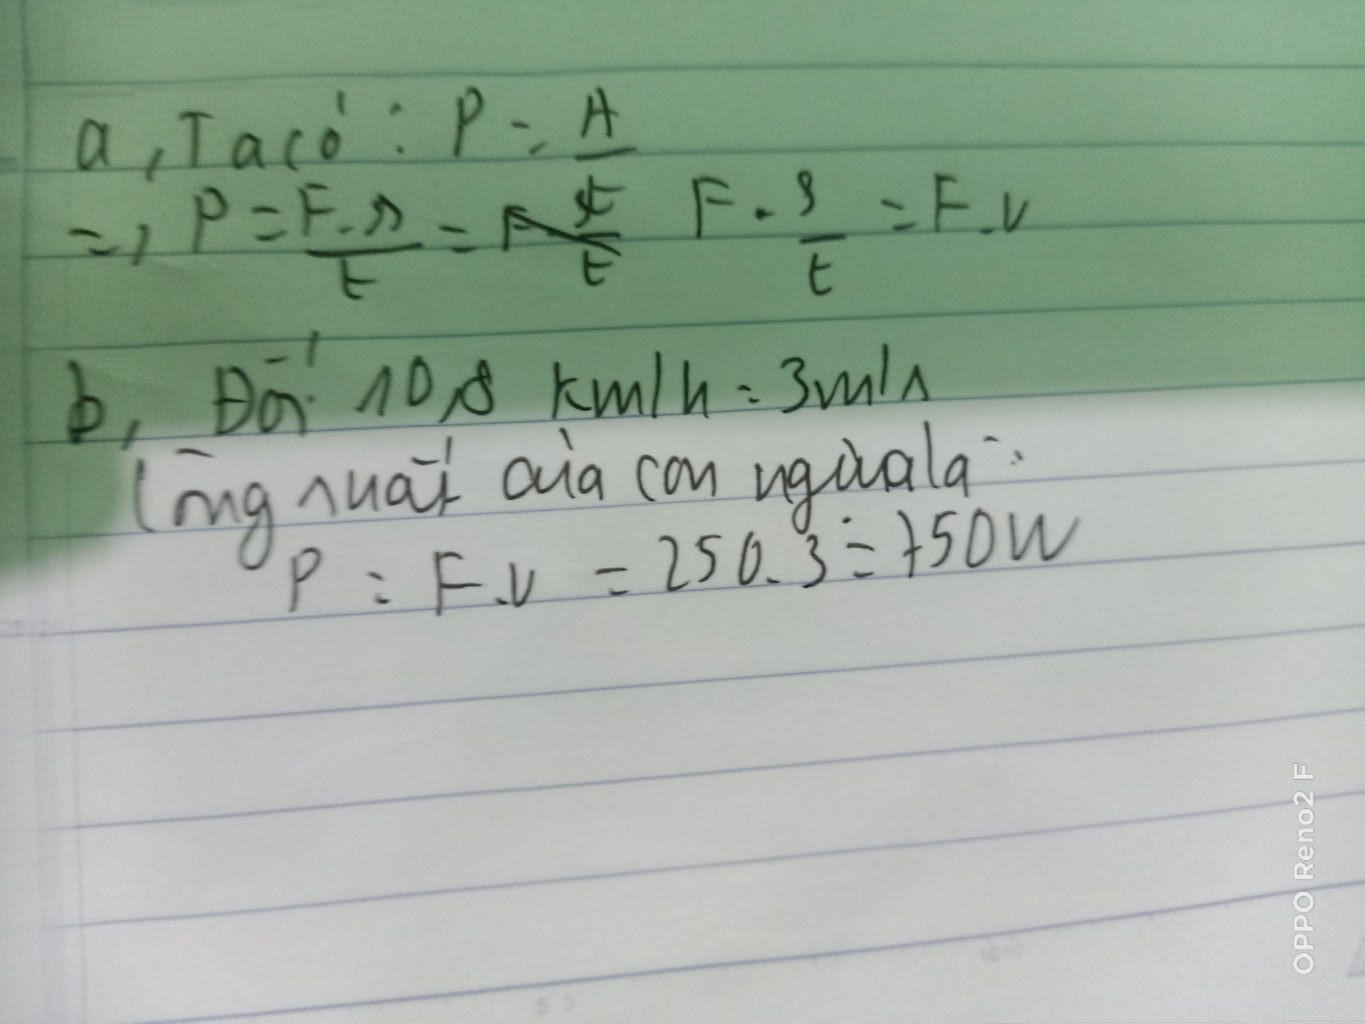 a, Ta có: P = A/t
=, P = F.s/t = F.s/t = F.v
b, Đổi 10,8 km/h = 3m/s
Công suất của con ngựa là:
P = F.v = 250.3 = 750W
OPPO Reno2 F